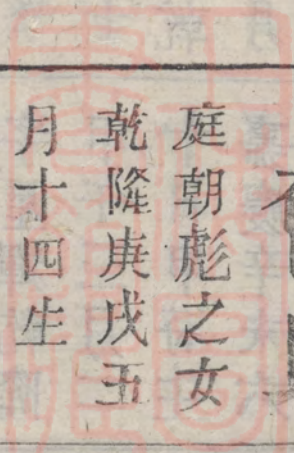 庭朝彪之女
乾隆庚戌五
月十四生